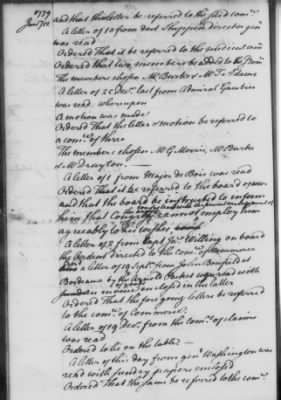 1779
Jany 12
and that the letter be referred to the said comee
A letter of 10 from Doct Shippen director gen
was read
Ordered That it be referred to the medical com
Ordered That two members be added to the
The members chosen Mr Burke & Mr
A letter of 25 Decr last from Admiral Gambier
was read whereupon
A motion was made
Ordered That the letter & motion be referred to
a comee of three
The members chosen Mr G Morris, Mr Burke
& Mr Drayton.
A letter of 1 from Major de Bois was read
Ordered That it be referred to the board of war
and that the board be instructed to inform
him that Congress cannot employ him
agreeably to his wishes
A letter of 2 from Capt Willing on board
the directed to the comee of commerce
a letter of 12 Sept from John Bonfield at
Bordeaux by the Packet read with
invoices enclosed in the latter
Ordered That the foregoing letters be referred
to the comee of Commerce.
A letter of 19 Decr from the comrs of claims
was read
Ordered to lie on the table
A letter of this day from genl Washington was
read with sundry papers enclosed
Ordered That the same be referred to the comee